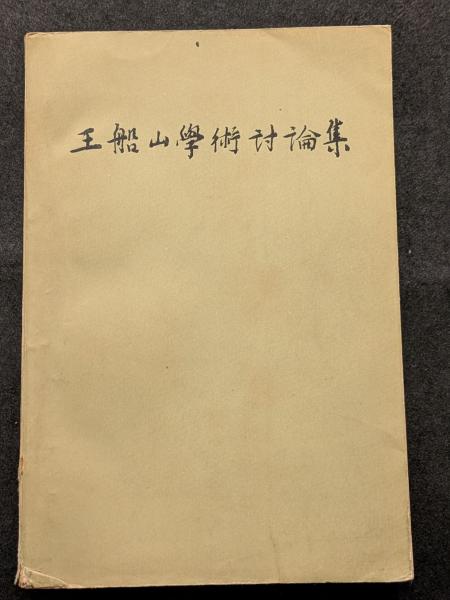 王船山學術討論集